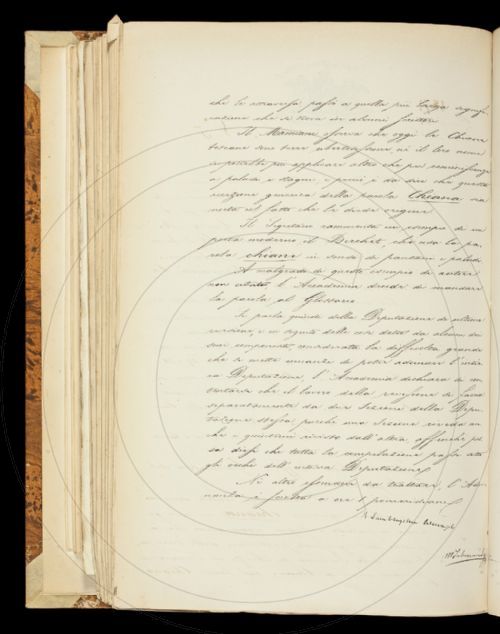 che le attraversa passò a quella più larga signifi
cazione che si trova in alcuni scrittori
Il Mamiani osserva che oggi le Chiane
toscane sono terre ubertosissime nè il loro nome
si potrebbe più applicare altro che per reminiscenza
a paludi e stagni, e perciò è da dire che questa
accezione generica della parola Chiana sia
nata
Il Segretario rammenta in esempio di un
poeta moderno il Berchet, che usa la pa
rola chiane in senso di pantani e paludi
A malgrado di questo esempio di autore
non citato, l'Accademia decide di mandare
la parola al Glossario
Si parla quindi della Deputazione di ultima
revisione, e in seguito delle cose dette da alcuni de
suoi componenti, considerata la difficoltà grande
che si mette innanzi di poter adunare l'inte
ra Deputazione, l'Accademia dichiara di
che il lavoro della revisione sia fatto
separatamente da due Sezioni della Depu
tazione stessa purchè una Sezione riveda an
che i quinterni rivisti dall'altra, affinchè pos
sa dirsi che tutta la compilazione passi sotto
gli occhi dell'intera Deputazione
Nè altro essendovi da trattare, l'Adu
nanza è sciolta a ore pomeridiane